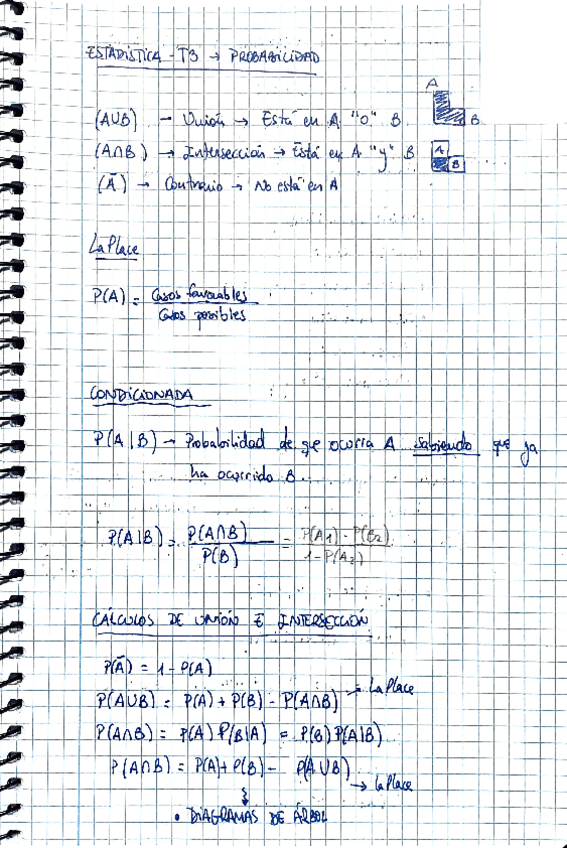 ESTADÍSTICA - T3 → PROBABILIDAD
A
(A∪B) → Unión → Está en A "o" B
B
(A∩B) → Intersección → Está en A "y" B
A
B
(Ā) → Contrario → No está en A
LaPlace
P(A) = Casos favorables
Casos posibles
CONDICIONADA
P(A|B) → Probabilidad de que ocurra A sabiendo que ya
ha ocurrido B.
P(A|B) = P(A∩B) = P(A1) - P(B2)
P(B) 1 - P(A2)
CÁLCULOS DE UNIÓN E INTERSECCIÓN
P(Ā) = 1 - P(A)
P(A∪B) = P(A) + P(B) - P(A∩B) → LaPlace
P(A∩B) = P(A) P(B|A) = P(B) P(A|B)
P(A∩B) = P(A) + P(B) - P(A∪B)
→ LaPlace
• DIAGRAMAS DE ÁRBOL